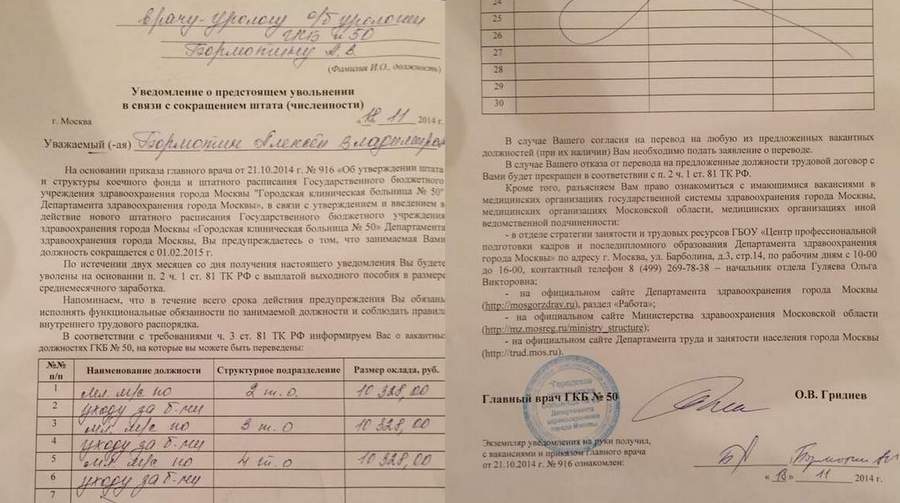 врачу-урологу о/б урологии
ГКБ №50
Бормотину А. В.
(Фамилия И.О., должность)
Уведомление о предстоящем увольнении
в связи с сокращением штата (численности)
г. Москва
11 2014 г.
Уважаемый (-ая) Бормотин Алексей Владимиров
На основании приказа главного врача от 21.10.2014 г. № 916 «Об утверждении штата
и структуры коечного фонда и штатного расписания Государственного бюджетного
учреждения здравоохранения города Москвы "Городская клиническая больница № 50"
Департамента здравоохранения города Москвы», в связи с утверждением и введением в
действие нового штатного расписания Государственного бюджетного учреждения
здравоохранения города Москвы «Городская клиническая больница № 50» Департамента
здравоохранения города Москвы, Вы предупреждаетесь о том, что занимаемая Вами
должность сокращается с 01.02.2015 г.
По истечении двух месяцев со дня получения настоящего уведомления Вы будете
уволены на основании п. 2 ч. 1 ст. 81 ТК РФ с выплатой выходного пособия в размере
среднемесячного заработка.
Напоминаем, что в течение всего срока действия предупреждения Вы обязаны
исполнять функциональные обязанности по занимаемой должности и соблюдать правила
внутреннего трудового распорядка.
В соответствии с требованиями ч. 3 ст. 81 ТК РФ информируем Вас о вакантных
должностях ГКБ № 50, на которые вы можете быть переведены:
№№ п/п Наименование должности Структурное подразделение Размер оклада, руб.
1 мл. м/с по 2 т.о 10 328,00
2 уходу за б-ми
3 мл. м/с по 3 т.о 10 328,00
4 уходу за б-ми
5 мл. м/с по 4 т.о 10 328,00
6 уходу за б-ми
7
24
25
26
27
28
29
30
В случае Вашего согласия на перевод на любую из предложенных вакантных
должностей (при их наличии) Вам необходимо подать заявление о переводе.
В случае Вашего отказа от перевода на предложенные должности трудовой договор с
Вами будет прекращен в соответствии с п. 2 ч. 1 ст. 81 ТК РФ.
Кроме того, разъясняем Вам право ознакомиться с имеющимися вакансиями в
медицинских организациях государственной системы здравоохранения города Москвы,
медицинских организациях Московской области, медицинских организациях иной
ведомственной подчиненности:
- в отделе стратегии занятости и трудовых ресурсов ГБОУ «Центр профессиональной
подготовки кадров и последипломного образования Департамента здравоохранения
города Москвы» по адресу г. Москва, ул. Барболина, д.3, стр.14, по рабочим дням с 10-00
до 16-00, контактный телефон 8 (499) 269-78-38 – начальник отдела Гуляева Ольга
Викторовна;
- на официальном сайте Департамента здравоохранения города Москвы
(http://mosgorzdrav.ru), раздел «Работа»;
- на официальном сайте Министерства здравоохранения Московской области
(http://mz.mosreg.ru/ministry_structure);
- на официальном сайте Департамента труда и занятости населения города Москвы
(http://trud.mos.ru).
"Городская
Департамента
здравоохранения
города Москвы
Главный врач ГКБ № 50 О.В. Гриднев
Экземпляр уведомления на руки получил,
с вакансиями и приказом главного врача
от 21.10.2014 г. № 916 ознакомлен:
11 2014 г.